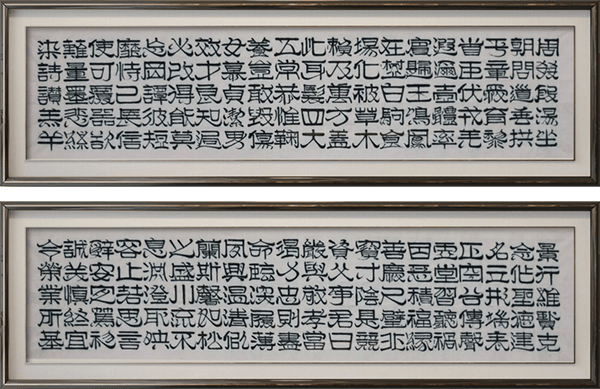 周發殷湯坐
朝問道垂拱
平章愛育黎
首臣伏戎羌
遐邇壹體率
賓歸王鳴鳳
在樹白駒食
場化被草木
賴及萬方蓋
此身髮四大
五常恭惟鞠
養豈敢毀傷
女慕貞潔男
效才良知過
必改得能莫
忘罔談彼短
靡恃己長信
使可覆器欲
難量墨悲絲
染詩讚羔羊
景行維賢克
念作聖德建
名立形端表
正空谷傳聲
虛堂習聽禍
因惡積福緣
善慶尺璧非
寶寸陰是競
資父事君曰
嚴與敬孝當
竭力忠則盡
命臨深履薄
夙興溫凊似
蘭斯馨如松
之盛川流不
息淵澄取映
容止若思言
辭安定篤初
誠美慎終宜
令榮業所基